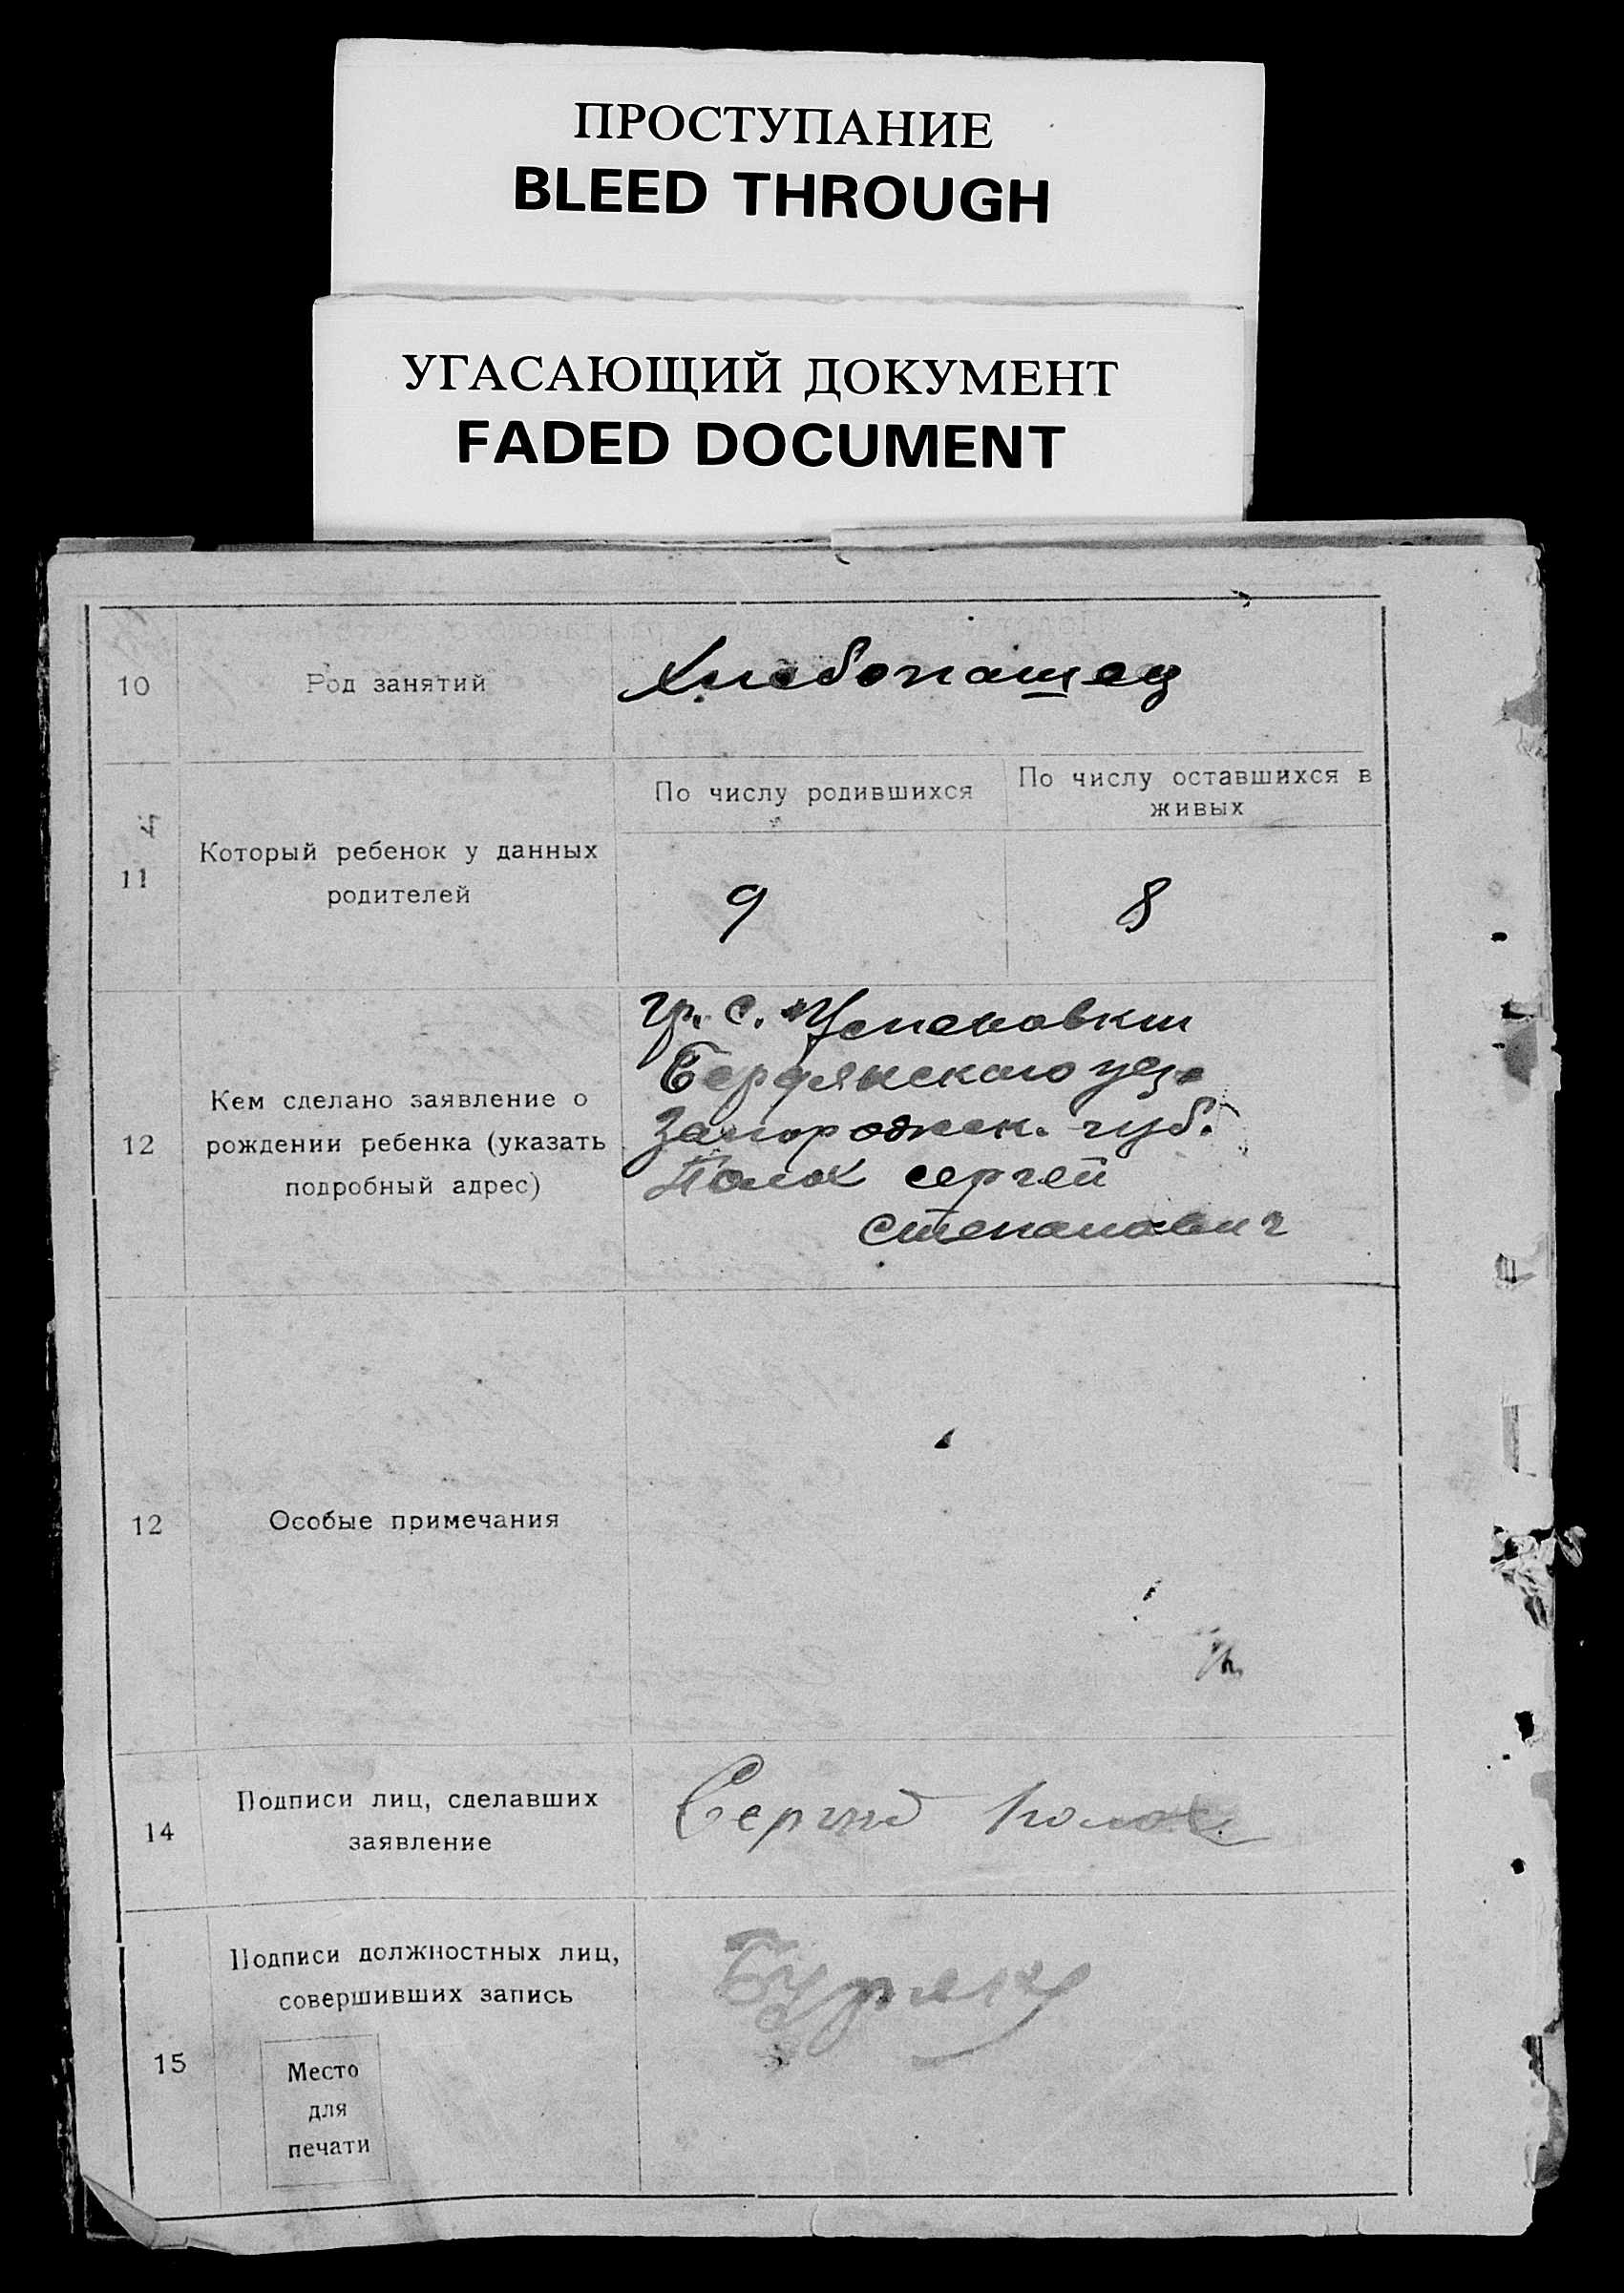 ПРОСТУПАНИЕ
BLEED THROUGH
УГАСАЮЩИЙ ДОКУМЕНТ
FADED DOCUMENT
10 Род занятий Хлебопашец
11 Который ребенок у данных родителей
По числу родившихся
По числу оставшихся в живых
9 8
12 Кем сделано заявление о
рождении ребенка (указать
подробный адрес)
гр. с. Успеновки
Бердянского уез.
Запорожск. губ.
Полох Сергей
Степанович
12 Особые примечания
14 Подписи лиц, сделавших
заявление
Сергий Полох
15 Подписи должностных лиц,
совершивших запись
Место
для
печати